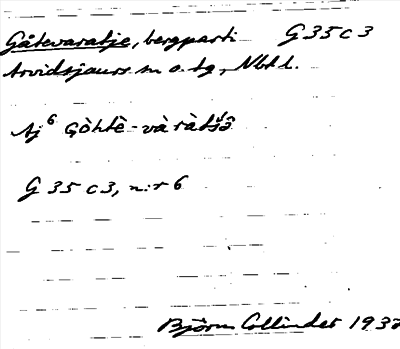 Gåtevaratje, bergparti G 35 c 3
Arvidsjaurs sn o. tg, Nbtl.
Aj⁶ Gòhtè-vàràtšə̂
G 35 c 3, n:r 6
Björn Collinder 1937